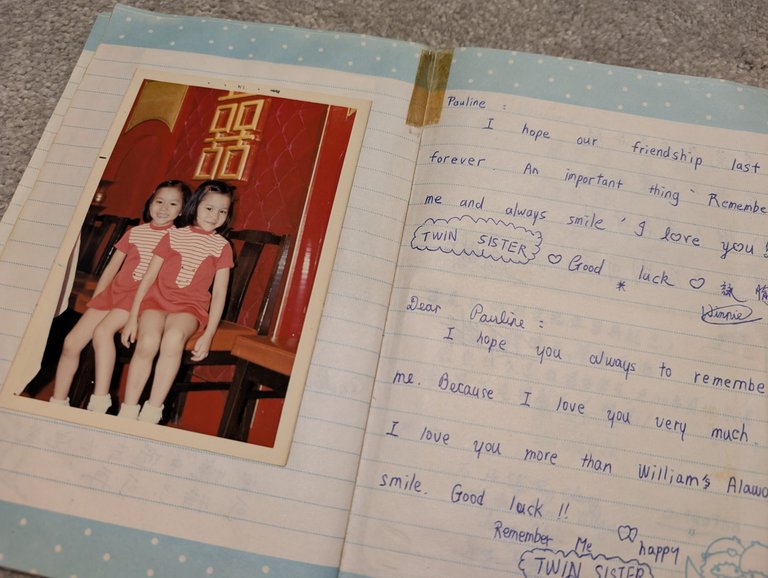 囍
Pauline :
I hope our friendship last
forever. An important thing " Remembe
me and always smile ' I love you !
TWIN SISTER ♡ Good * luck ♡
Winnie
Dear Pauline :
I hope you always to remembe
me. Because I love you very much.
I love you more than William's Alawa
smile. Good luck !!
Remember Me happy
TWIN SISTER